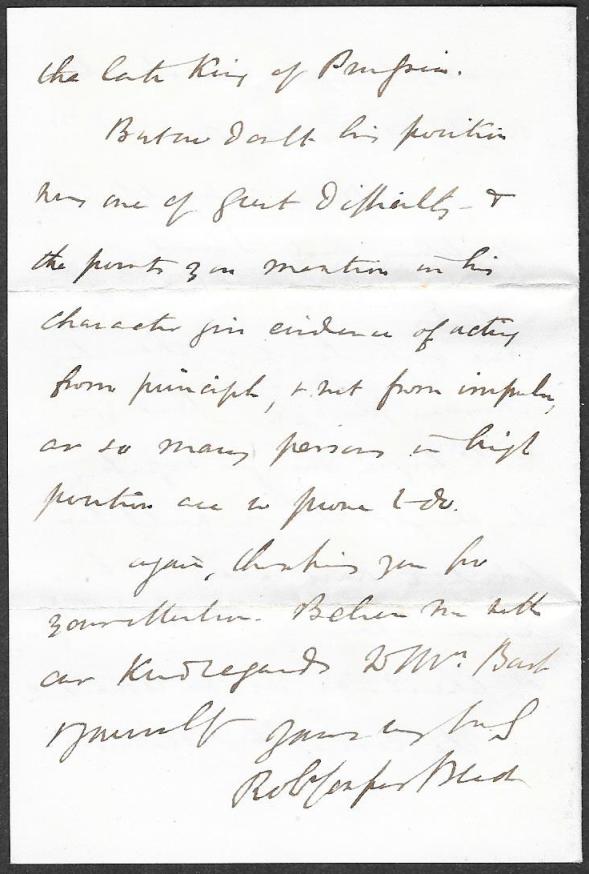 the late King of Prussia.
But no doubt his position
was one of great difficulty - &
the points you mention in his
character give evidence of acting
from principle, & not from impulse,
as so many persons in high
position are so prone to do.
Again, thanking you for
your attention. Believe me with
our Kind regards to Mrs.
& yourself yours very truly
Rob